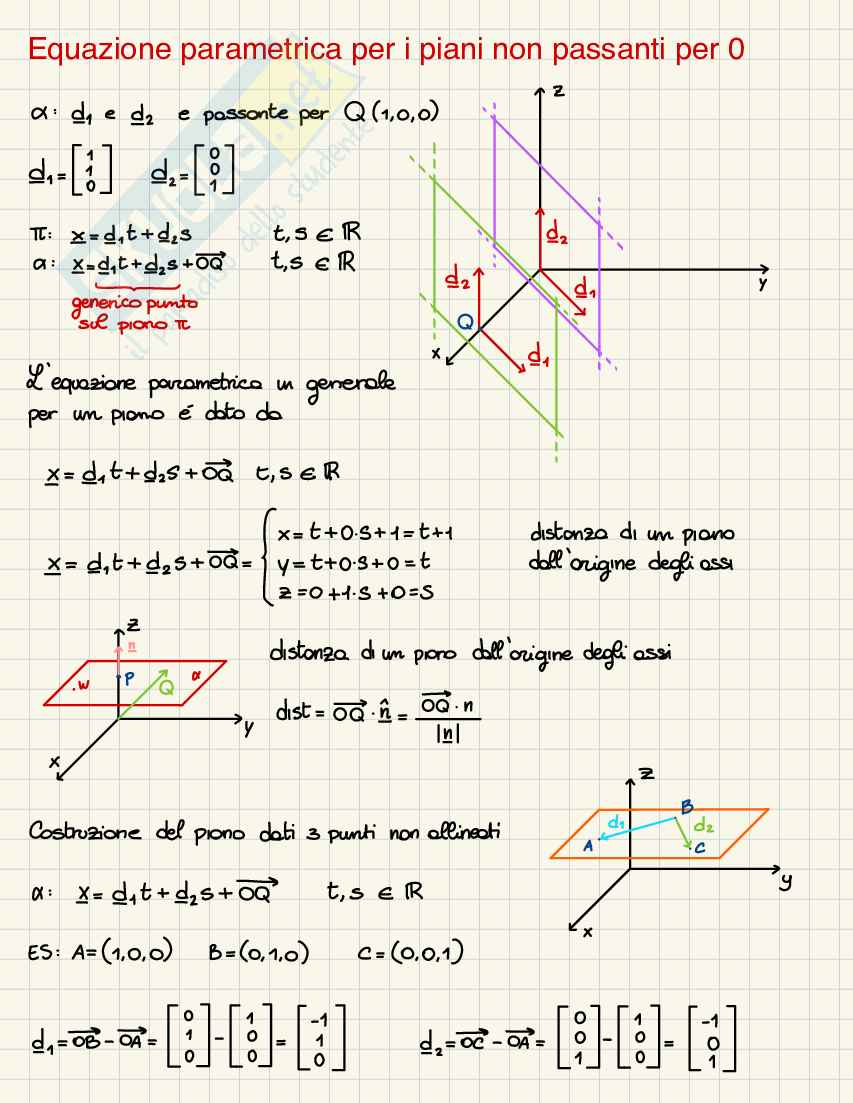 Equazione parametrica per i piani non passanti per 0
α: d₁ e d₂ e passante per Q(1,0,0)
d₁ = [1 1 0] d₂ = [0 0 1]
π: x = d₁t + d₂s t, s ∈ ℝ
α: x = d₁t + d₂s + OQ t, s ∈ ℝ
generico punto
sul piano π
z
d₂
d₂
d₁
y
Q
d₁
x
L'equazione parametrica in generale
per un piano é dato da
x = d₁t + d₂s + OQ t, s ∈ ℝ
x = d₁t + d₂s + OQ =
x = t + 0·s + 1 = t + 1
y = t + 0·s + 0 = t
z = 0 + 1·s + 0 = s
distanza di un piano
dall'origine degli assi
z
n
.w
P
Q
α
y
x
distanza di un piano dall'origine degli assi
dist = OQ · n̂ = OQ · n / |n|
Costruzione del piano dati 3 punti non allineati
z
d₁
B
d₂
A
C
y
x
α: x = d₁t + d₂s + OQ t, s ∈ ℝ
ES: A = (1,0,0) B = (0,1,0) C = (0,0,1)
d₁ = OB - OA = [0 1 0] - [1 0 0] = [-1 1 0] d₂ = OC - OA = [0 0 1] - [1 0 0] = [-1 0 1]